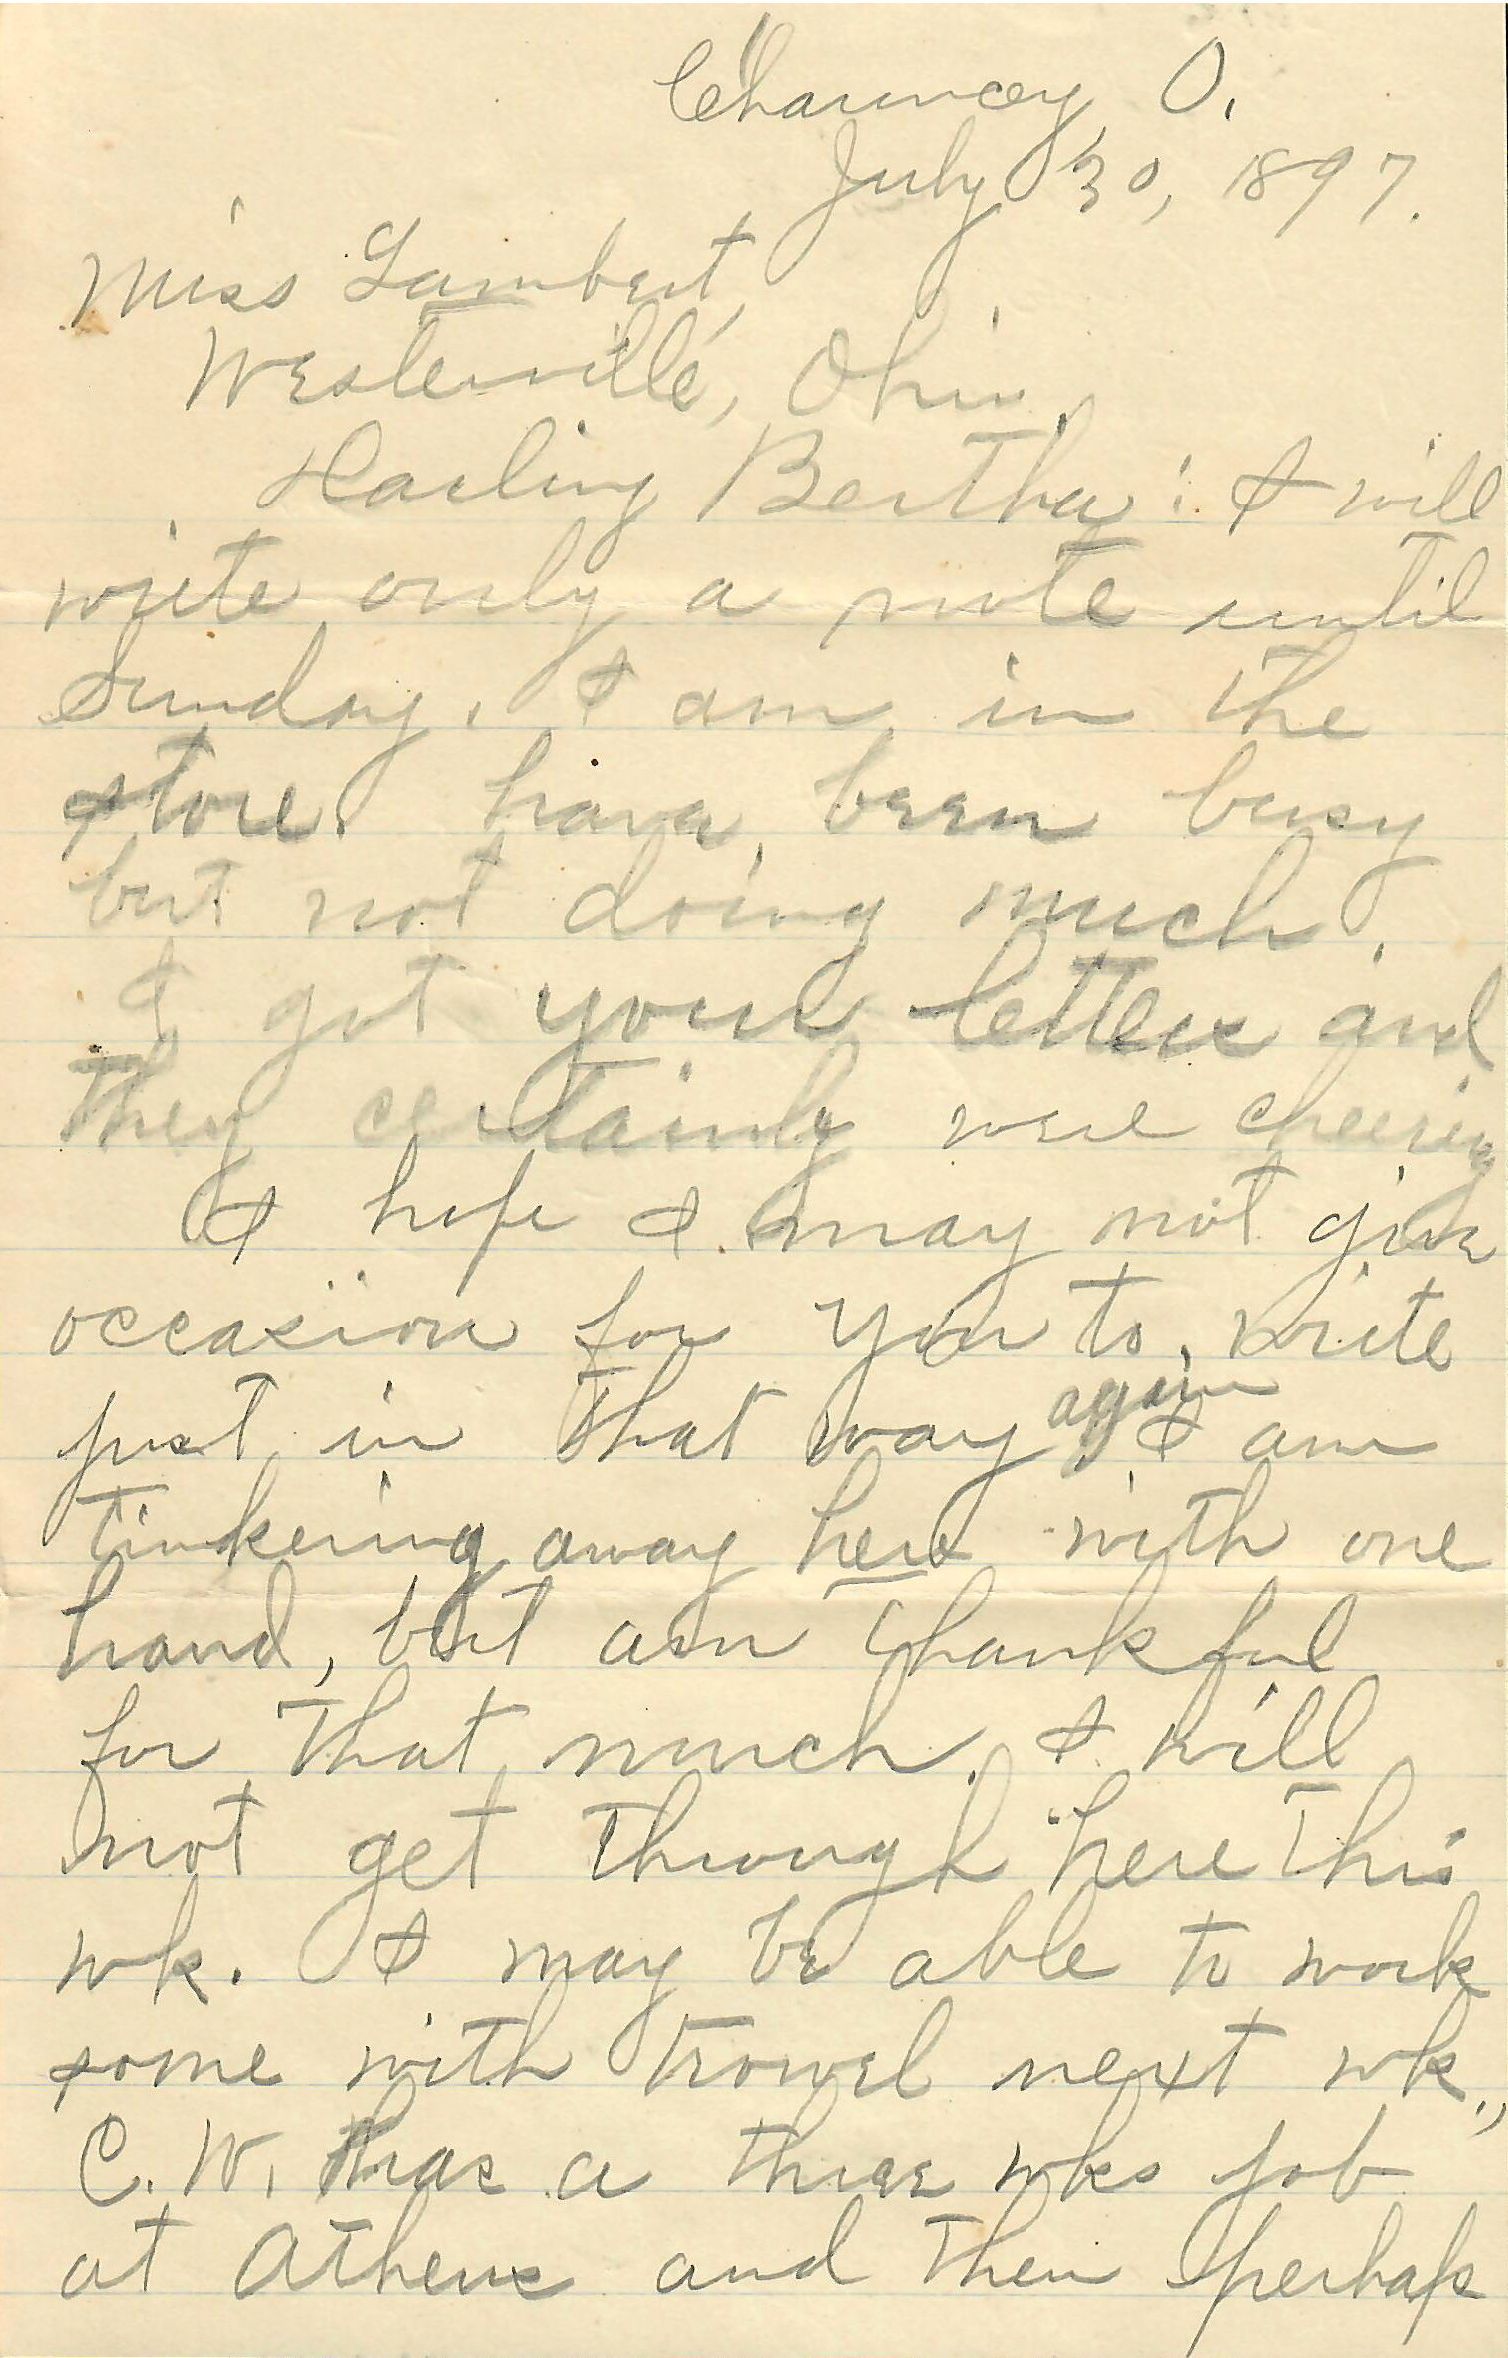 Chauncey, O.
July 30, 1897.
Miss Lambert,
Westerville, Ohio.
Darling Bertha: I will
write only a note until
Sunday. I am in the
store. have been busy
but not doing much.
I got your letters and
they certainly were cheering
I hope I may not give
occasion for you to write
just in that way again I am
tinkering away here with one
hand, but am thankful
for that much. I will
not get through here this
wk. I may be able to work
some with trowel next wk.,
C. W. has a three wks job
at Athens and then perhaps